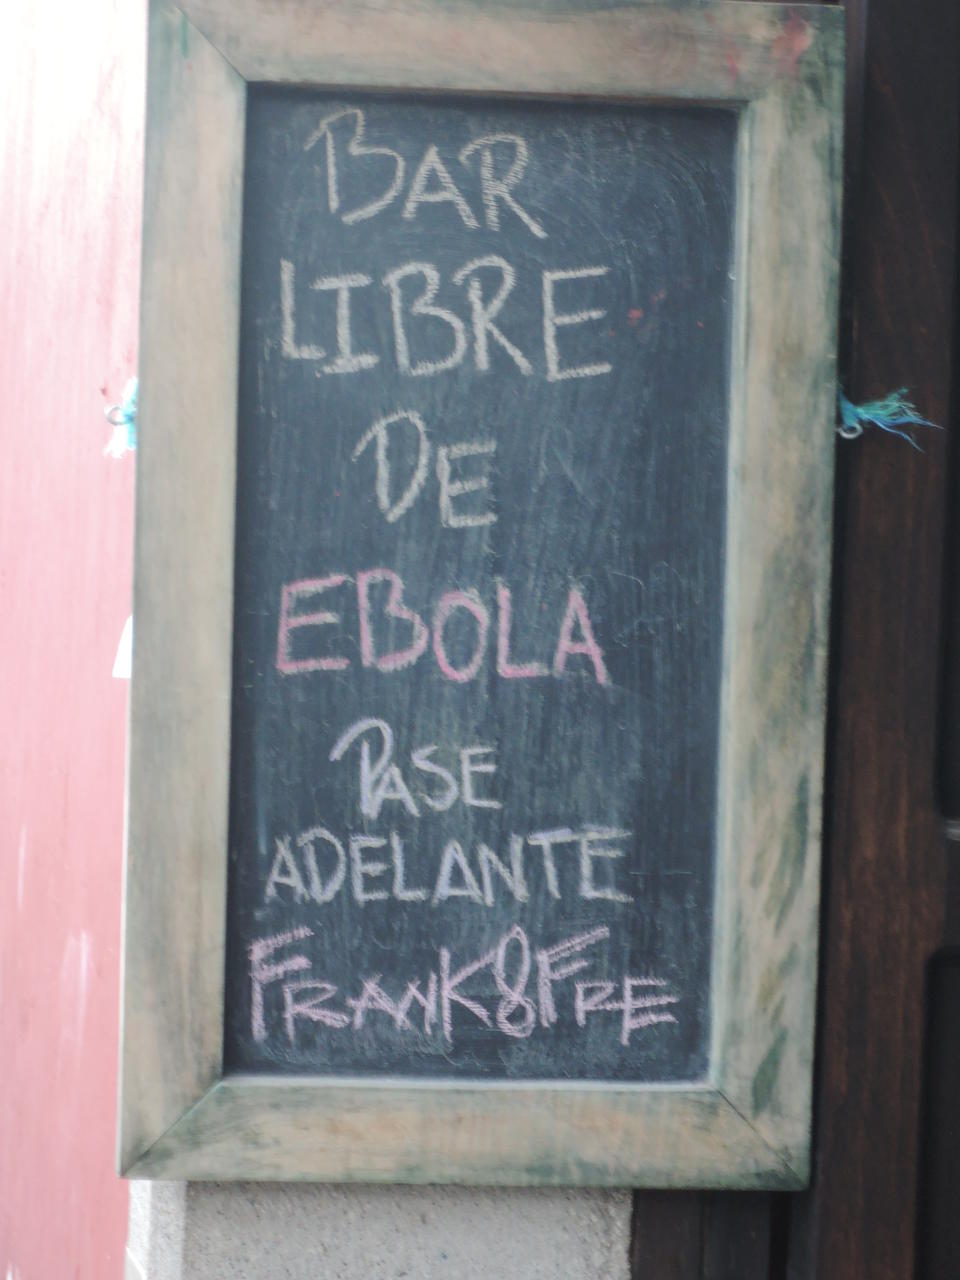 BAR
LIBRE
DE
EBOLA
PASE
ADELANTE
FRANK&FRE